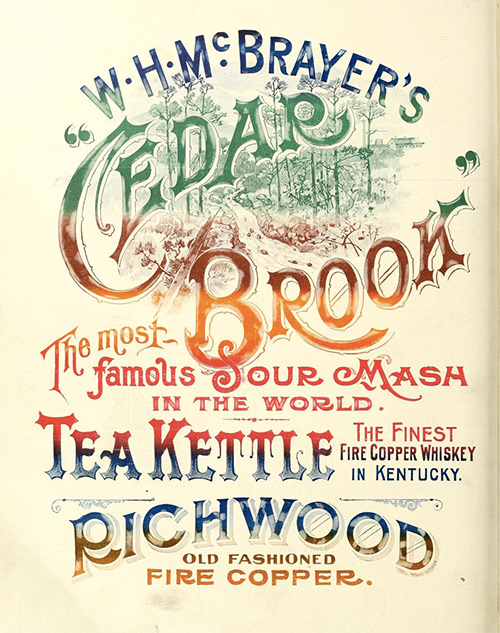 W·H·McBRAYER'S
"CEDAR
BROOK"
The most
famous SOUR MASH
IN THE WORLD.
TEA KETTLE
THE FINEST
FIRE COPPER WHISKEY
IN KENTUCKY.
RICHWOOD
OLD FASHIONED
FIRE COPPER.